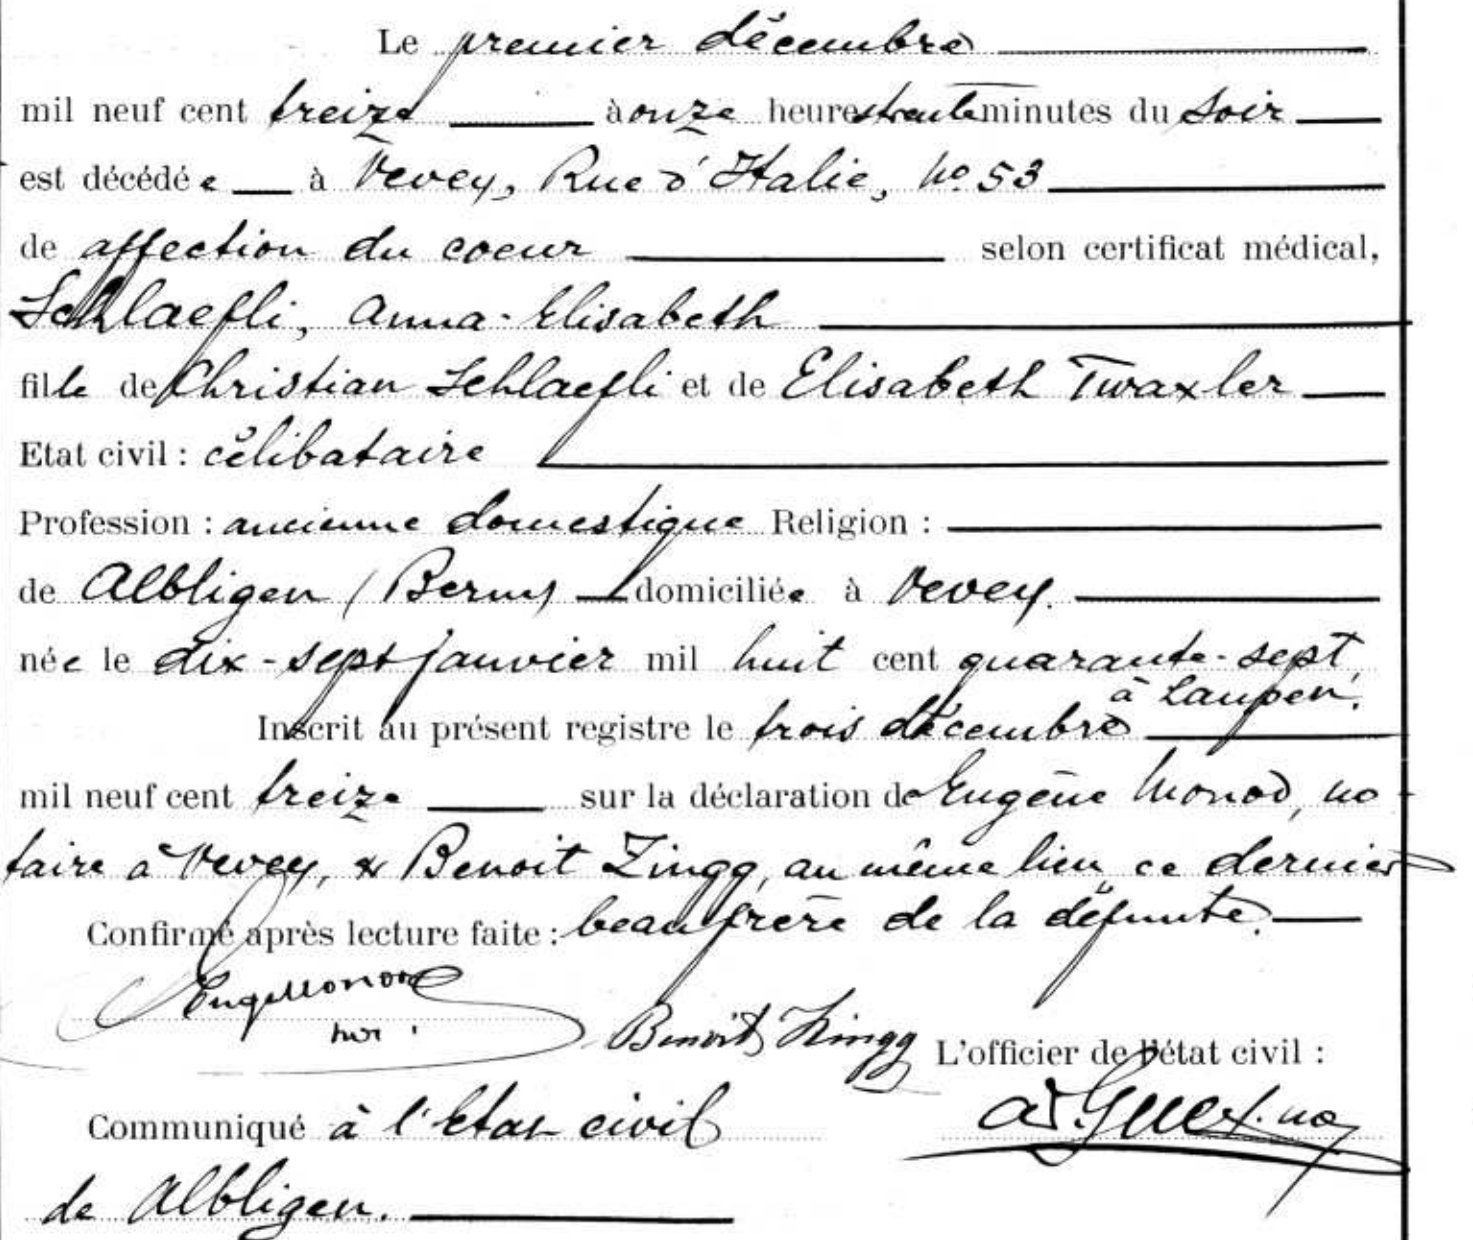 Le premier décembre
mil neuf cent treize à onze heures trente minutes du soir
est décédée à Vevey, Rue d'Italie, No 53
de affection du coeur selon certificat médical,
Schlaefli, Anna-Elisabeth
fille de Christian Schlaefli et de Elisabeth Twaxler
Etat civil : célibataire
Profession : ancienne domestique Religion :
de Albligen (Berne) domiciliée à Vevey.
née le dix-sept janvier mil huit cent quarante-sept,
à Laupen.
Inscrit au présent registre le trois décembre
mil neuf cent treize sur la déclaration de Eugène Monod, no
taire à Vevey, & Benoit Zingg, au même lieu ce dernier
Confirmé après lecture faite : beau frère de la défunte.
Eug Monod
not.
Benoit Zingg
L'officier de l'état civil :
Communiqué à l'Etat civil
de Albligen.